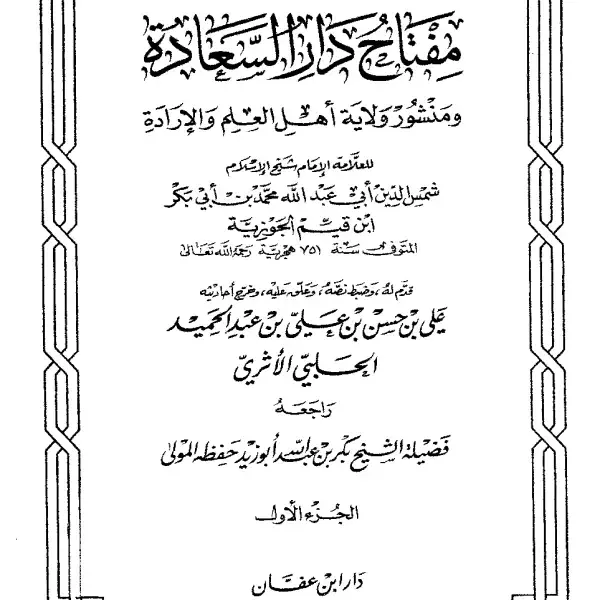 مِفْتَاحُ دَارِ السَّعَادَة
وَمَنْشُورُ وِلَايَةِ أَهْلِ العِلْمِ وَالإِرَادَةِ
للعلّامة الإمام شيخ الإسلام
شمس الدين أبي عبد الله محمد بن أبي بكر
ابن قيم الجوزية
المتوفى سنة ٧٥١ هجرية رحمه الله تعالى
قدّم له، وضبط نصّه، وعلّق عليه، وخرّج أحاديثه
علي بن حسن بن علي بن عبد الحميد
الحلبي الأثري
راجعه
فضيلة الشيخ بكر بن عبد الله أبو زيد حفظه المولى
الجزء الأول
دار ابن عفان